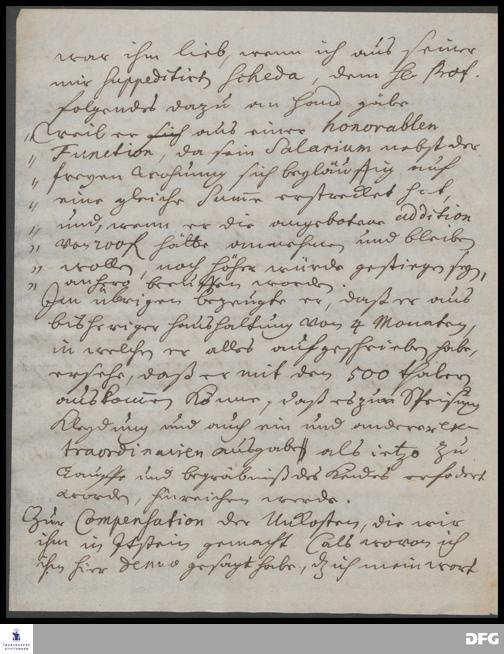 war ihm lieb, wenn ich aus seiner
mir suppeditirten scheda, dem H. Prof.
folgendes dazu an Hand gäbe
„ (weil er sich aus einer honorablen
„ Function, da sein Salarium nebst der
„ freyen Wohnung sich beyläuffig auf
„ eine gleiche Summe erstrecket hat
„ und, wenn er die angebotene addition
„ von 200 f hätte annehmen und bleiben
„ wollen, noch höher würde gestiegen seyn,
„ anhero beruffen worden.
Im übrigen bezeugte er, daß er aus
bisheriger Haushaltung von 4 Monaten,
in welchen er alles aufgeschrieben habe,
ersehe, daß er mit den 500 Thalern
auskommen könne, daß es zur Speisung
Kleydung und auch ein und anderer ex-
traordinairen ausgabe als ietzo zu
Tauffe und begräbniß des Kindes erfodert
worden, hinreichen werde.
Zur Compensation der Unkosten, die wir
ihm in Itzstein gemacht (als wovon ich
ihm hier denuo gesagt habe, dz ich mein wort
FRANCKESCHE STIFTUNGEN
DFG